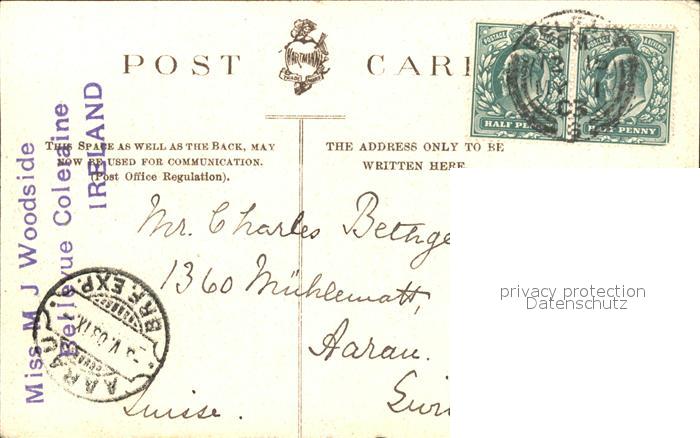 POST CARD
HARTMANN
TRADE MARK
POSTAGE
HALF PENNY
HALF PENNY
THIS SPACE AS WELL AS THE BACK, MAY
NOW BE USED FOR COMMUNICATION.
(Post Office Regulation).
THE ADDRESS ONLY TO BE
WRITTEN HERE
Miss M J Woodside
Bellevue Coleraine
IRELAND
Mr. Charles Bethge
1360 Mühlematt,
Aarau.
Suisse.
AARAU
BRF. EXP.
privacy protection
Datenschutz